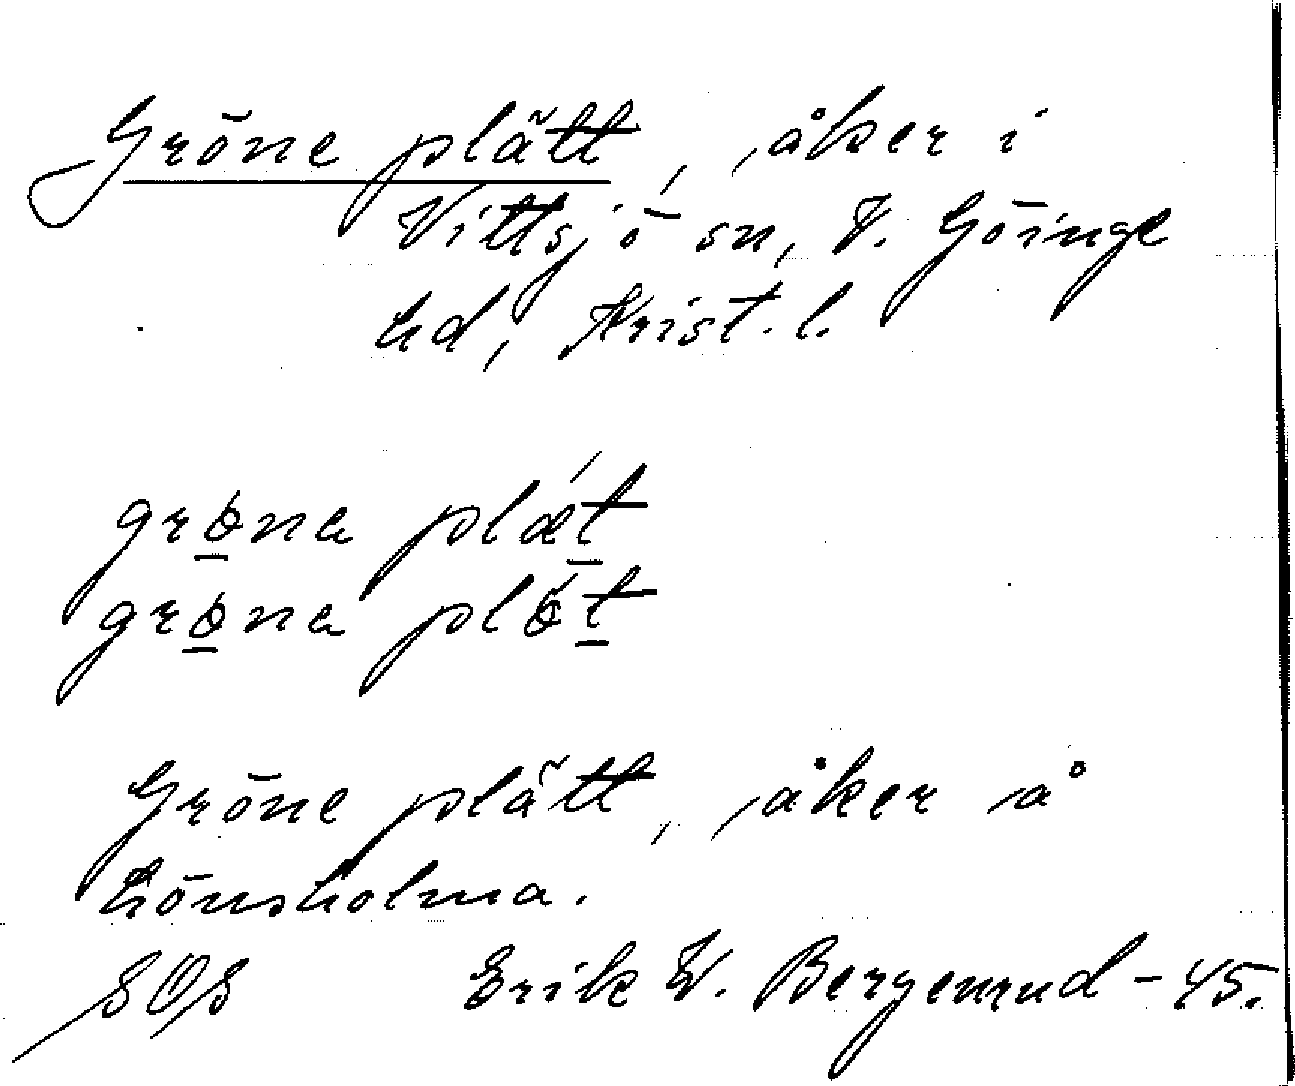 Gröne plätt, åker i
Vittsjö sn, V. Göinge
hd, Krist. l.
grøna plǽt
grøna plǿt
Gröne plätt, åker å
hönsholma.
SOS Erik W. Bergenrud -45.